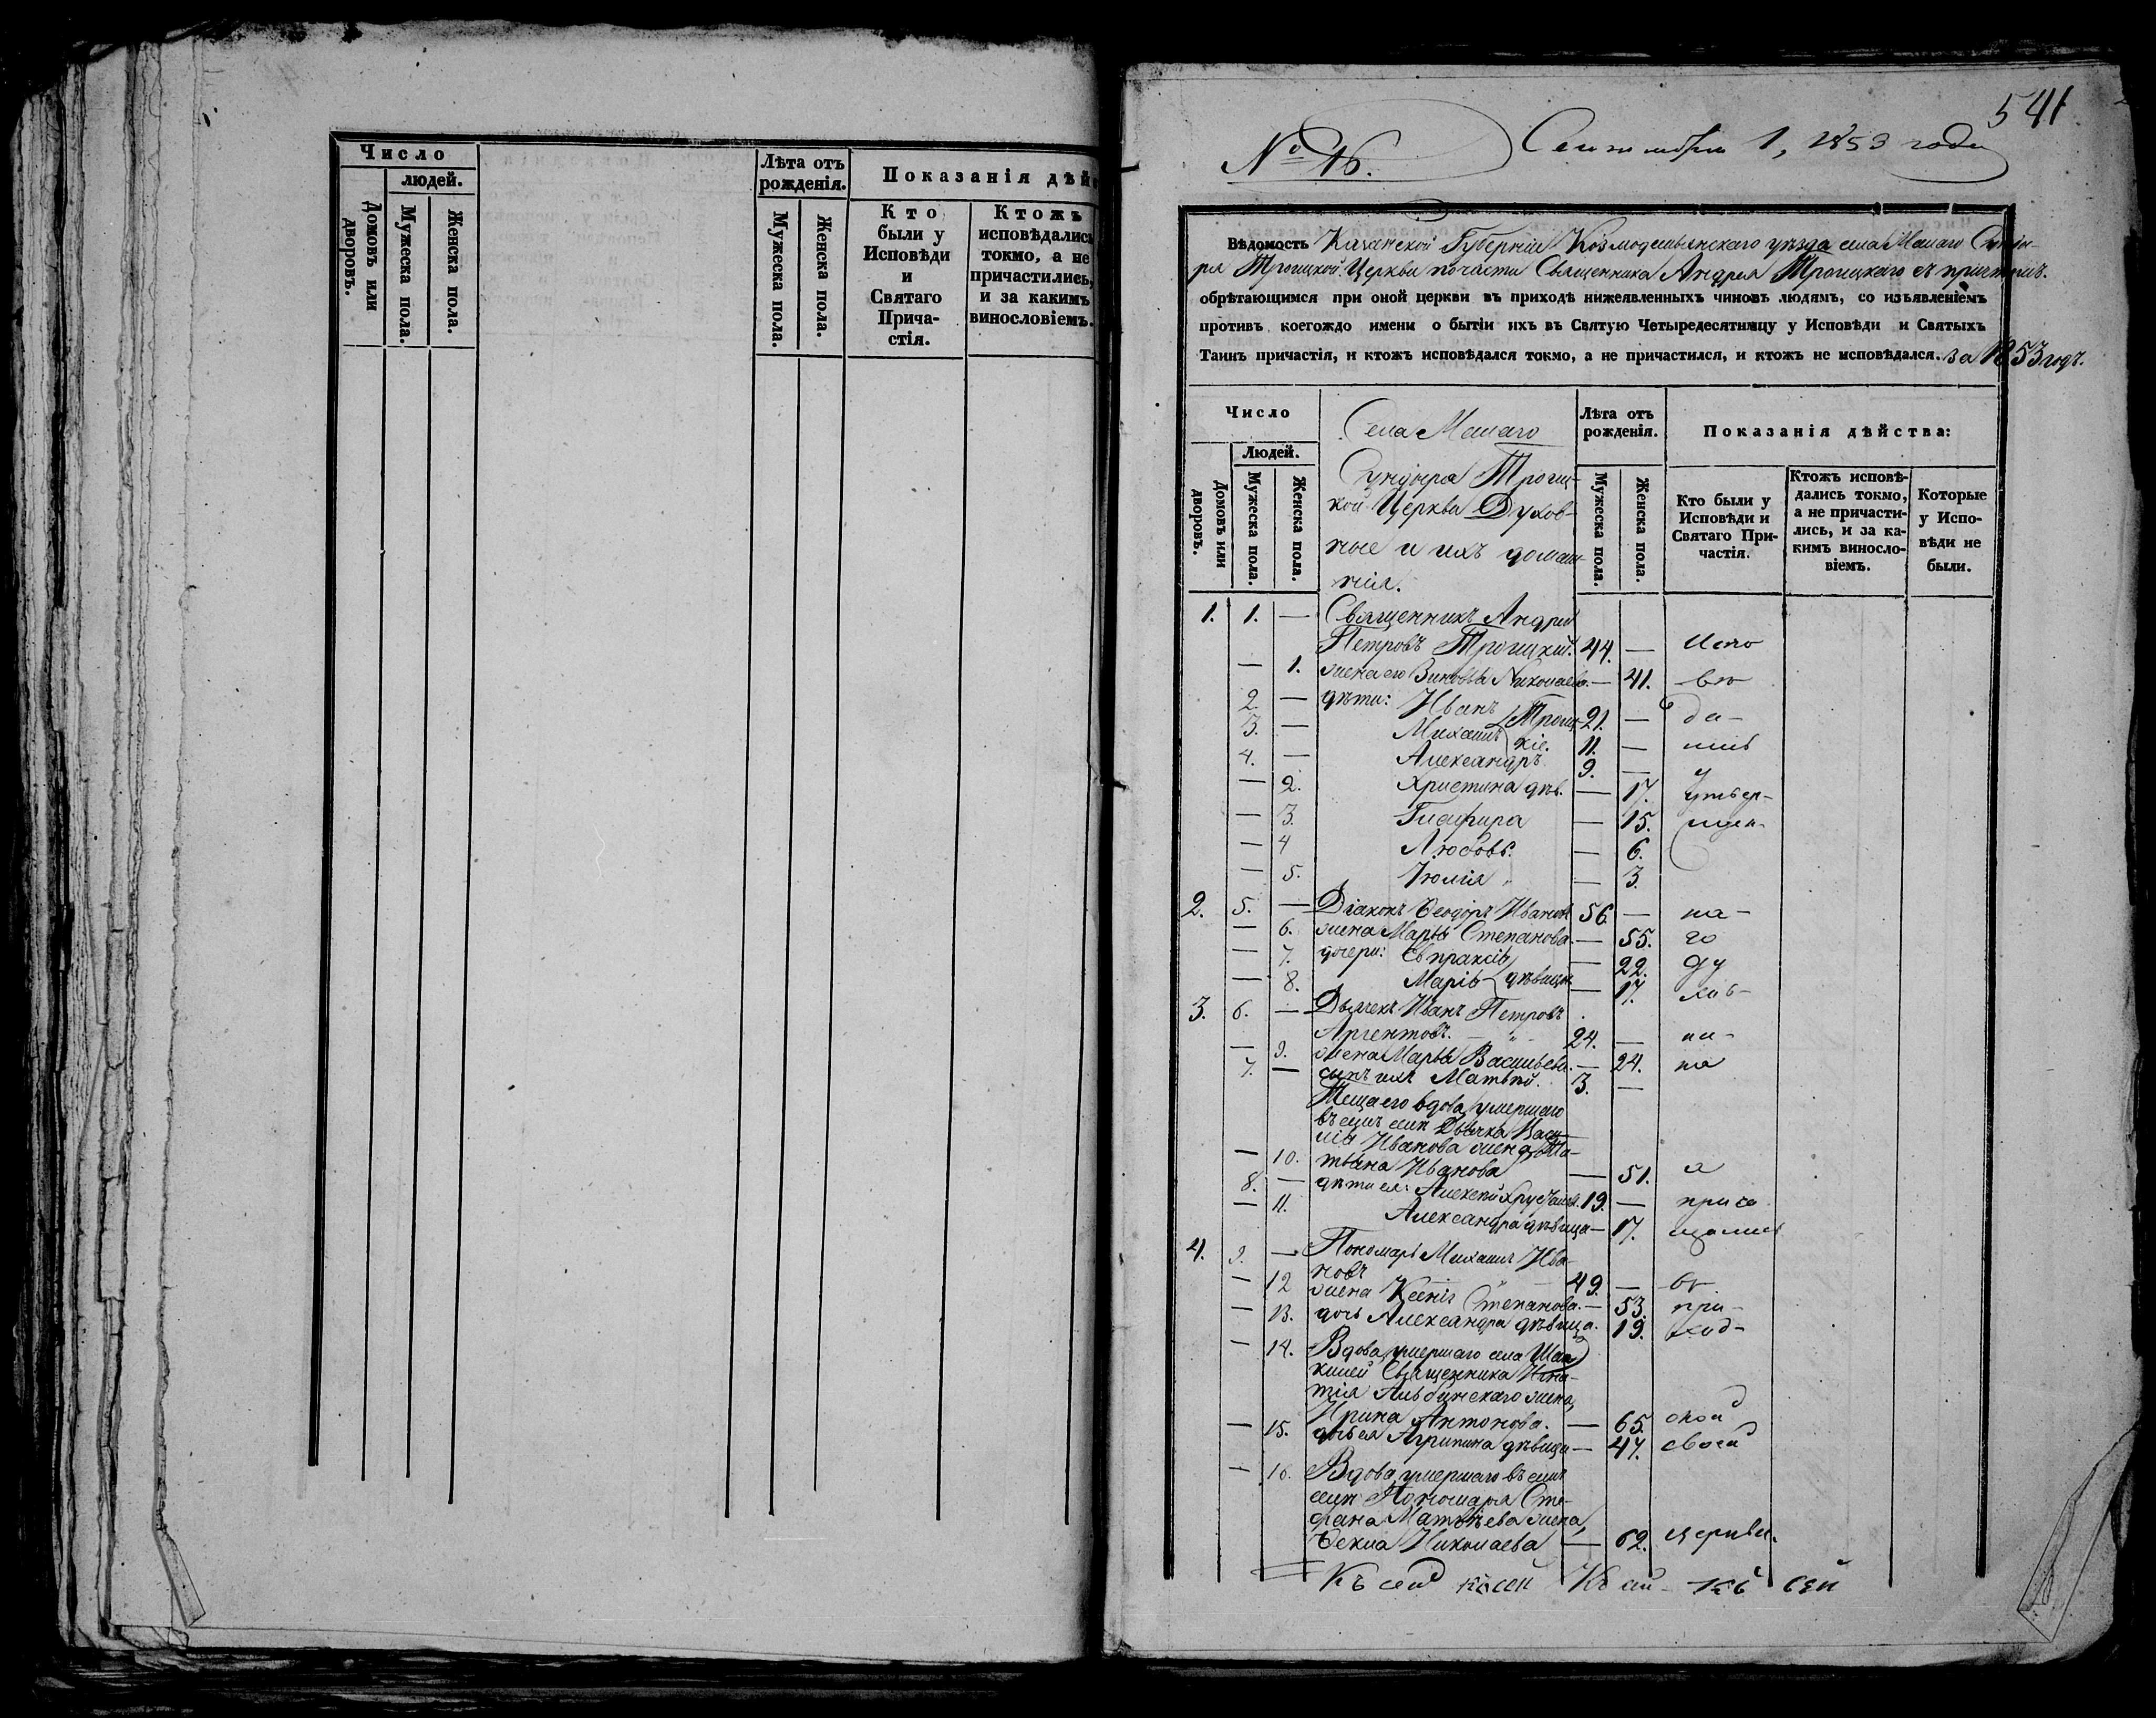 Число
людей.
Домовъ или дворовъ.
Мужеска пола.
Женска пола.
Лѣта отъ рожденія.
Мужеска пола.
Женска пола.
Показанія дѣй
Кто
были у
Исповѣди
и
Святаго
Прича-
стія.
Ктожъ
исповѣдались
токмо, а не
причастились,
и за какимъ
винословіемъ.
541
№ 16.
Сентября 1, 1853 года
Вѣдомость Казанской Губерніи Козмодемьянскаго уѣзда села Малаго Сундыр-
ря Троицкой Церкви по части Священника Андрея Троицкаго съ причтомъ.
обрѣтающимся при оной церкви въ приходѣ нижеявленныхъ чиновъ людямъ, со изъявленіемъ
противъ коегождо имени о бытіи ихъ въ Святую Четыредесятницу у Исповѣди и Святыхъ
Таинъ причастія, и ктожъ исповѣдался токмо, а не причастился, и ктожъ не исповѣдался. за 1853 годъ.
Число
Людей.
Домовъ или дворовъ.
Мужеска пола.
Женска пола.
Села Малаго
Сундыря Троиц-
кой Церкви Духов-
ные и ихъ домаш-
нія.
Лѣта отъ
рожденія.
Мужеска пола.
Женска пола.
Показанія дѣйства:
Кто были у
Исповѣди и
Святаго При-
частія.
Ктожъ исповѣ-
дались токмо,
а не причасти-
лись, и за ка-
кимъ виносло-
віемъ.
Которые
у Испо-
вѣди не
были.
1. 1. — Священникъ Андрей
Петровъ Троицкій. 44. — Испо
— 1. жена его Зиновья Николаева. — 41. вѣ
2. — дѣти: Иванъ Троиц- 21. — да-
3. — Михаилъ кіе. 11. — лись
4. — Александръ 9. — у
— 2. Христина дѣв. — 17. утвер-
— 3. Глафира — 15.
— 4 Любовь. — 6.
— 5. Юлія — 3.
2. 5. — Діаконъ Ѳеодоръ Ивановъ 56 — на-
— 6. жена Марѳа Степанова. — 55. го
— 7. дочери: Евпраксія — 22. ду
— 8. Марія дѣвицы — 17. хов-
3. 6. — Дьячекъ Иванъ Петровъ
Аргентовъ. — 24. — ни-
— 9. жена Марѳа Васильева. — 24. ка
7. — сынъ ихъ Матвѣй. 3. —
Теща его вдова, умершаго
въ семъ селѣ Дьячка Васи-
лія Иванова жена, Та-
— 10. тьяна Иванова — 51. а
8. — дѣти ея: Алексѣй Хрусталев. 19. — прича
— 11. Александра дѣвица — 17. щались
4. 9. — Пономарь Михаилъ Ива-
новъ — 49. — въ
— 12 жена Ксенія Степанова. — 53. при-
— 13. дочь Александра дѣвица. 19. ход-
— 14. Вдова, умершаго села Шап
килей Священника Игна-
тія Альбинскаго жена,
Ирина Антонова. — 65. ской
— 15. дочь ея Агрипина дѣвица — 47. своей
— 16. Вдова, умершаго въ семъ
селѣ Пономаря Сте-
фана Матвѣева жена,
Ѳекла Николаева — 62. церкви.
Къ сей къ сей Къ сей къ сей